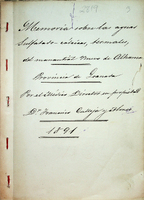 Memoria sobre las aguas
Sulfatado-cálcicas, termales,
del manantial Nuevo de Alhama
Provincia de Granada
Por el Médico Director en propiedad
Dr Francisco
1891